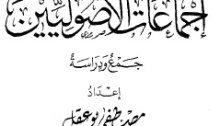 إجماعات الأصوليين
جمع ودراسة
إعداد
مصطفى بو عقل